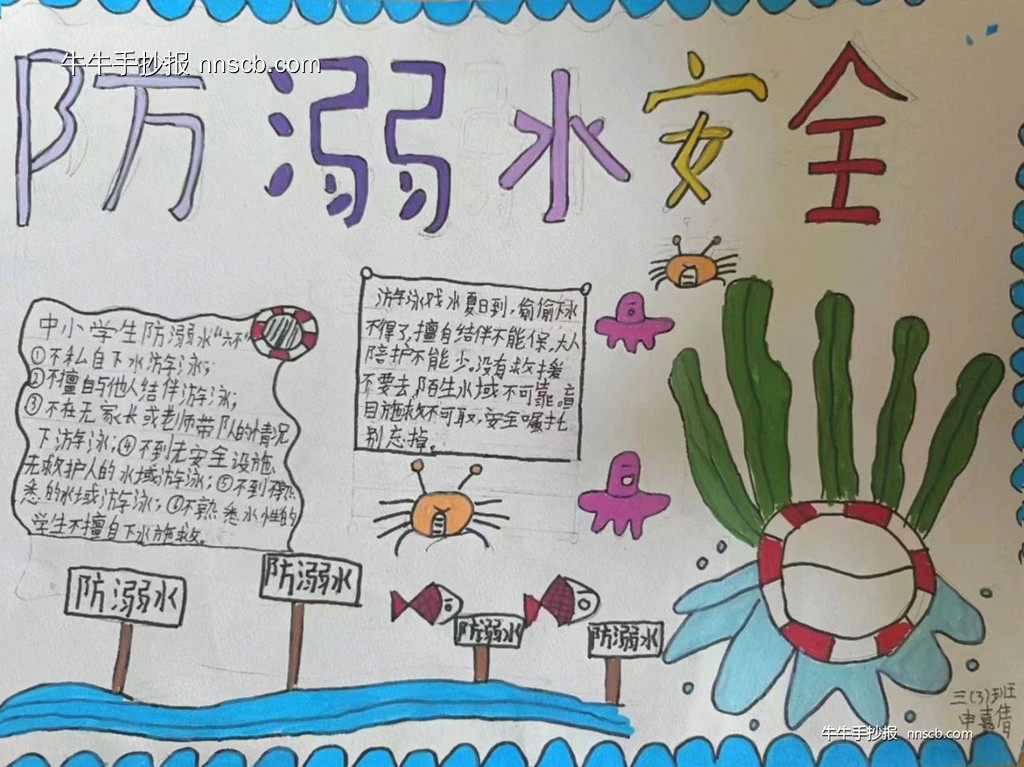 牛牛手抄报 nnscb.com
防溺水安全
中小学生防溺水“六不”
①不私自下水游泳;
②不擅自与他人结伴游泳;
③不在无家长或老师带队的情况
下游泳;④不到无安全设施、
无救护人的水域游泳;⑤不到不熟
悉的水域游泳;⑥不熟悉水性的
学生不擅自下水施救。
游泳戏水夏日到,偷偷下水
不得了,擅自结伴不能保,大人
陪护不能少。没有救援
不要去,陌生水域不可靠。盲
目施救不可取,安全嘱托
别忘掉。
防溺水
防溺水
防溺水
防溺水
三(3)班
申嘉倩
牛牛手抄报 nnscb.com